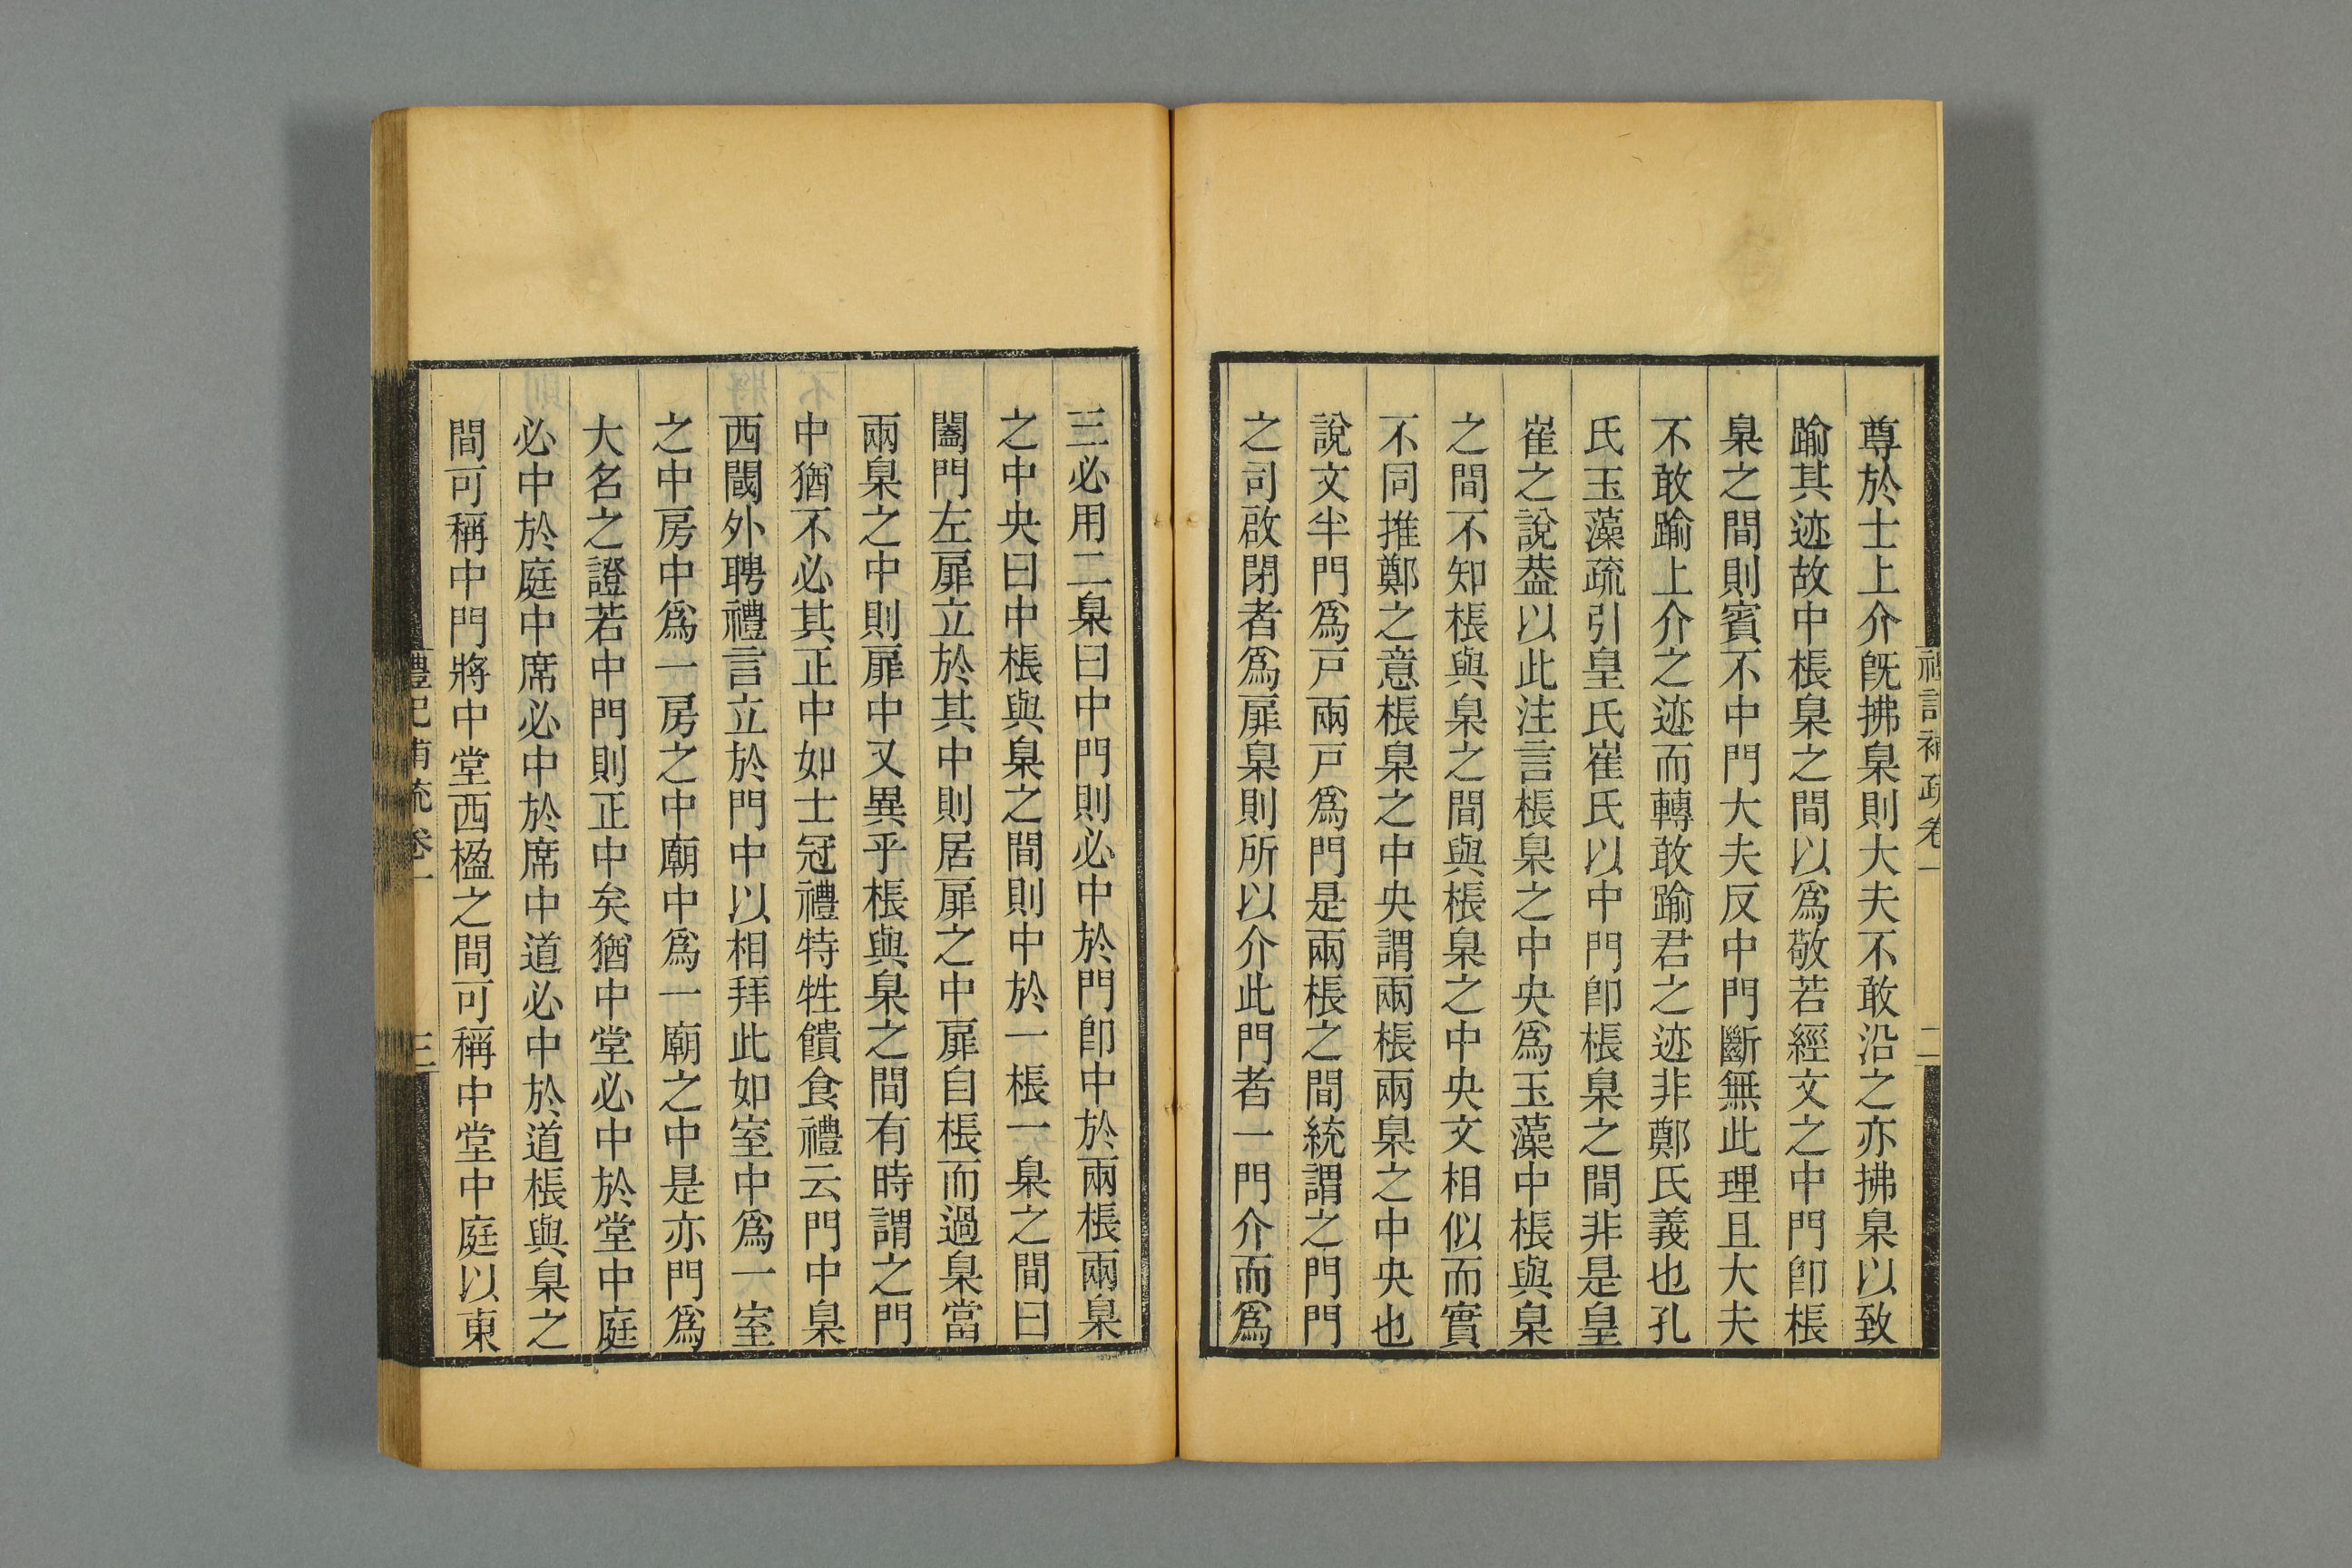 禮記補疏卷一
二
尊於士上介旣拂臬則大夫不敢沿之亦拂臬以致
踰其迹故中棖臬之間以爲敬若經文之中門卽棖
臬之間則賓不中門大夫反中門斷無此理且大夫
不敢踰上介之迹而轉敢踰君之迹非鄭氏義也孔
氏玉藻疏引皇氏崔氏以中門卽棖臬之間非是皇
崔之說葢以此注言棖臬之中央爲玉藻中棖與臬
之間不知棖與臬之間與棖臬之中央文相似而實
不同推鄭之意棖臬之中央謂兩棖兩臬之中央也
說文半門爲戸兩戸爲門是兩棖之間統謂之門門
之司啟閉者爲扉臬則所以介此門者一門介而爲
三必用二臬曰中門則必中於門卽中於兩棖兩臬
之中央曰中棖與臬之間則中於一棖一臬之間曰
闔門左扉立於其中則居扉之中扉自棖而過臬當
兩臬之中則扉中又異乎棖與臬之間有時謂之門
中猶不必其正中如士冠禮特牲饋食禮云門中臬
西閾外聘禮言立於門中以相拜此如室中爲一室
之中房中爲一房之中廟中爲一廟之中是亦門爲
大名之證若中門則正中矣猶中堂必中於堂中庭
必中於庭中席必中於席中道必中於道棖與臬之
間可稱中門將中堂西楹之間可稱中堂中庭以東
禮記補疏卷一
三